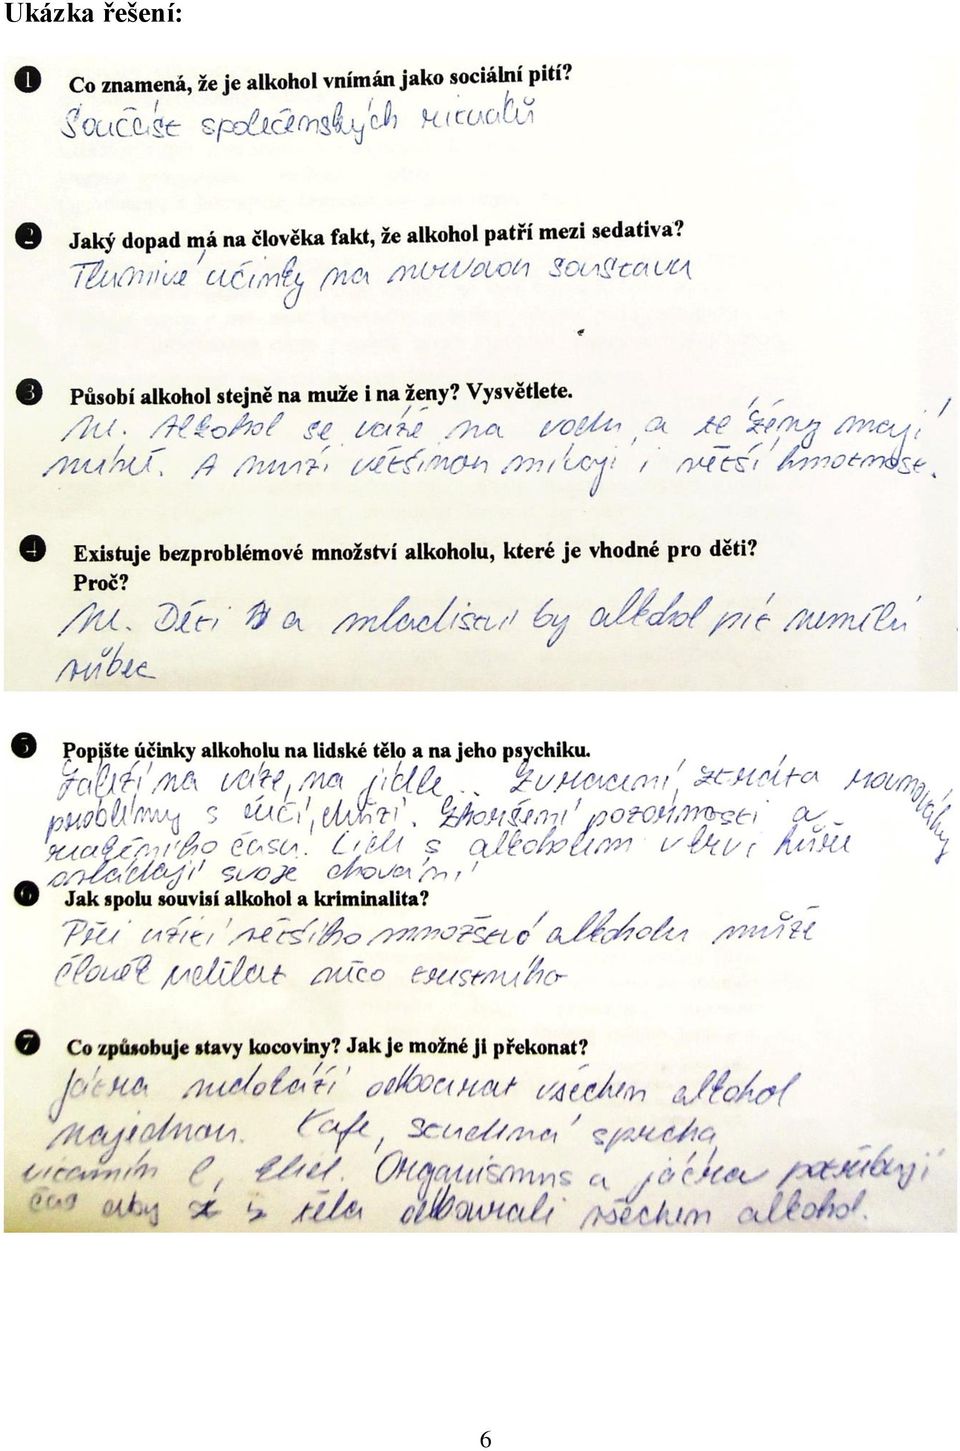 Ukázka řešení:
1 Co znamená, že je alkohol vnímán jako sociální pití?
Součást společenských rituálů
2 Jaký dopad má na člověka fakt, že alkohol patří mezi sedativa?
Tlumivé účinky na nervovou soustavu
3 Působí alkohol stejně na muže i na ženy? Vysvětlete.
Ne. Alkohol se váže na vodu, a té ženy mají
méně. A muži většinou mívají i větší hmotnost.
4 Existuje bezproblémové množství alkoholu, které je vhodné pro děti?
Proč?
Ne. Děti a mladiství by alkohol pít neměli
vůbec
5 Popište účinky alkoholu na lidské tělo a na jeho psychiku.
Záleží na váze, na jídle.. Zvracení, ztráta rovnováhy
problémy s řečí, chůzí. Zhoršení pozornosti a
reakčního času. Lidi s alkoholem v krvi hůře
ovládají svoje chování
6 Jak spolu souvisí alkohol a kriminalita?
Při užití většího množství alkoholu může
člověk udělat něco trestného
7 Co způsobuje stavy kocoviny? Jak je možné ji překonat?
Játra nedokáží odbourat všechen alkohol
najednou. Kafe, studená sprcha,
vitamín C, klid. Organismus a játra potřebují
čas aby z těla odbourali všechen alkohol.
6